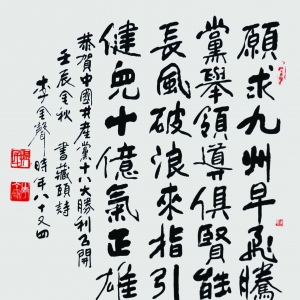 願求九州早飛騰
黨舉領導俱賢能
長風破浪來指引
健兒十億氣正雄
恭賀中國共產黨十八大勝利召開
壬辰金秋 書藏頭詩
李金聲 時年八十又四